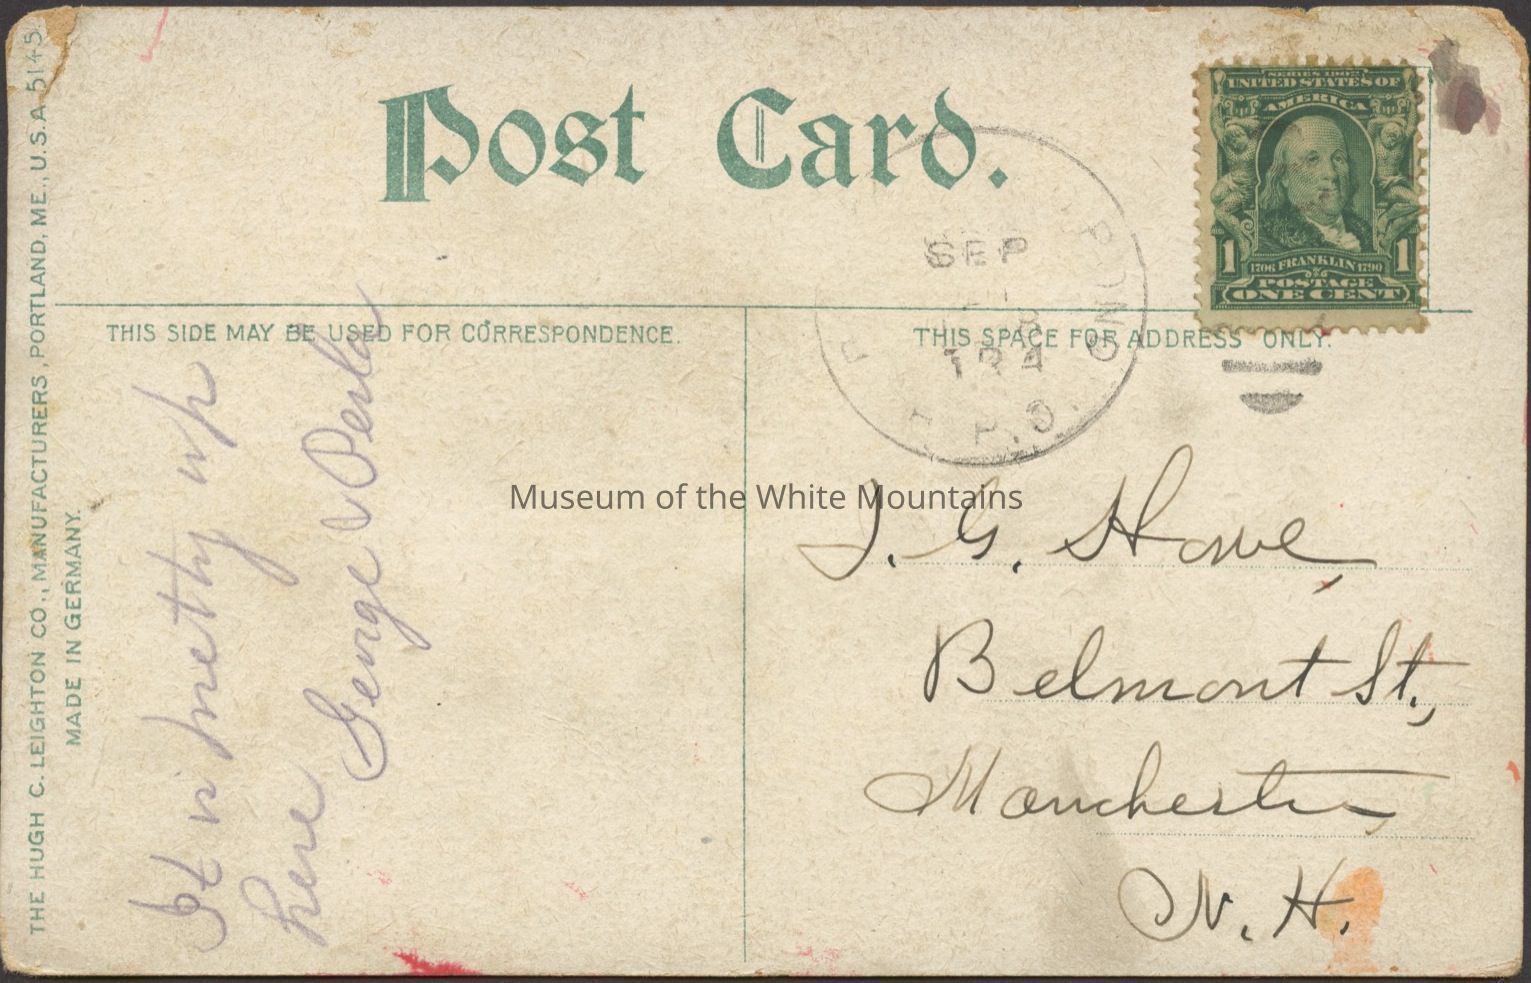 THE HUGH C. LEIGHTON CO., MANUFACTURERS, PORTLAND, ME., U.S.A. 5145.
MADE IN GERMANY.
Post Card.
SERIES 1902
UNITED STATES OF
AMERICA
1 1
1706 FRANKLIN 1790
POSTAGE
ONE CENT
SEP
R.P.O.
THIS SIDE MAY BE USED FOR CORRESPONDENCE.
THIS SPACE FOR ADDRESS ONLY.
It is pretty up
here
George & Perla
Museum of the White Mountains
J. G. Howe,
Belmont St.,
Manchester,
N. H.